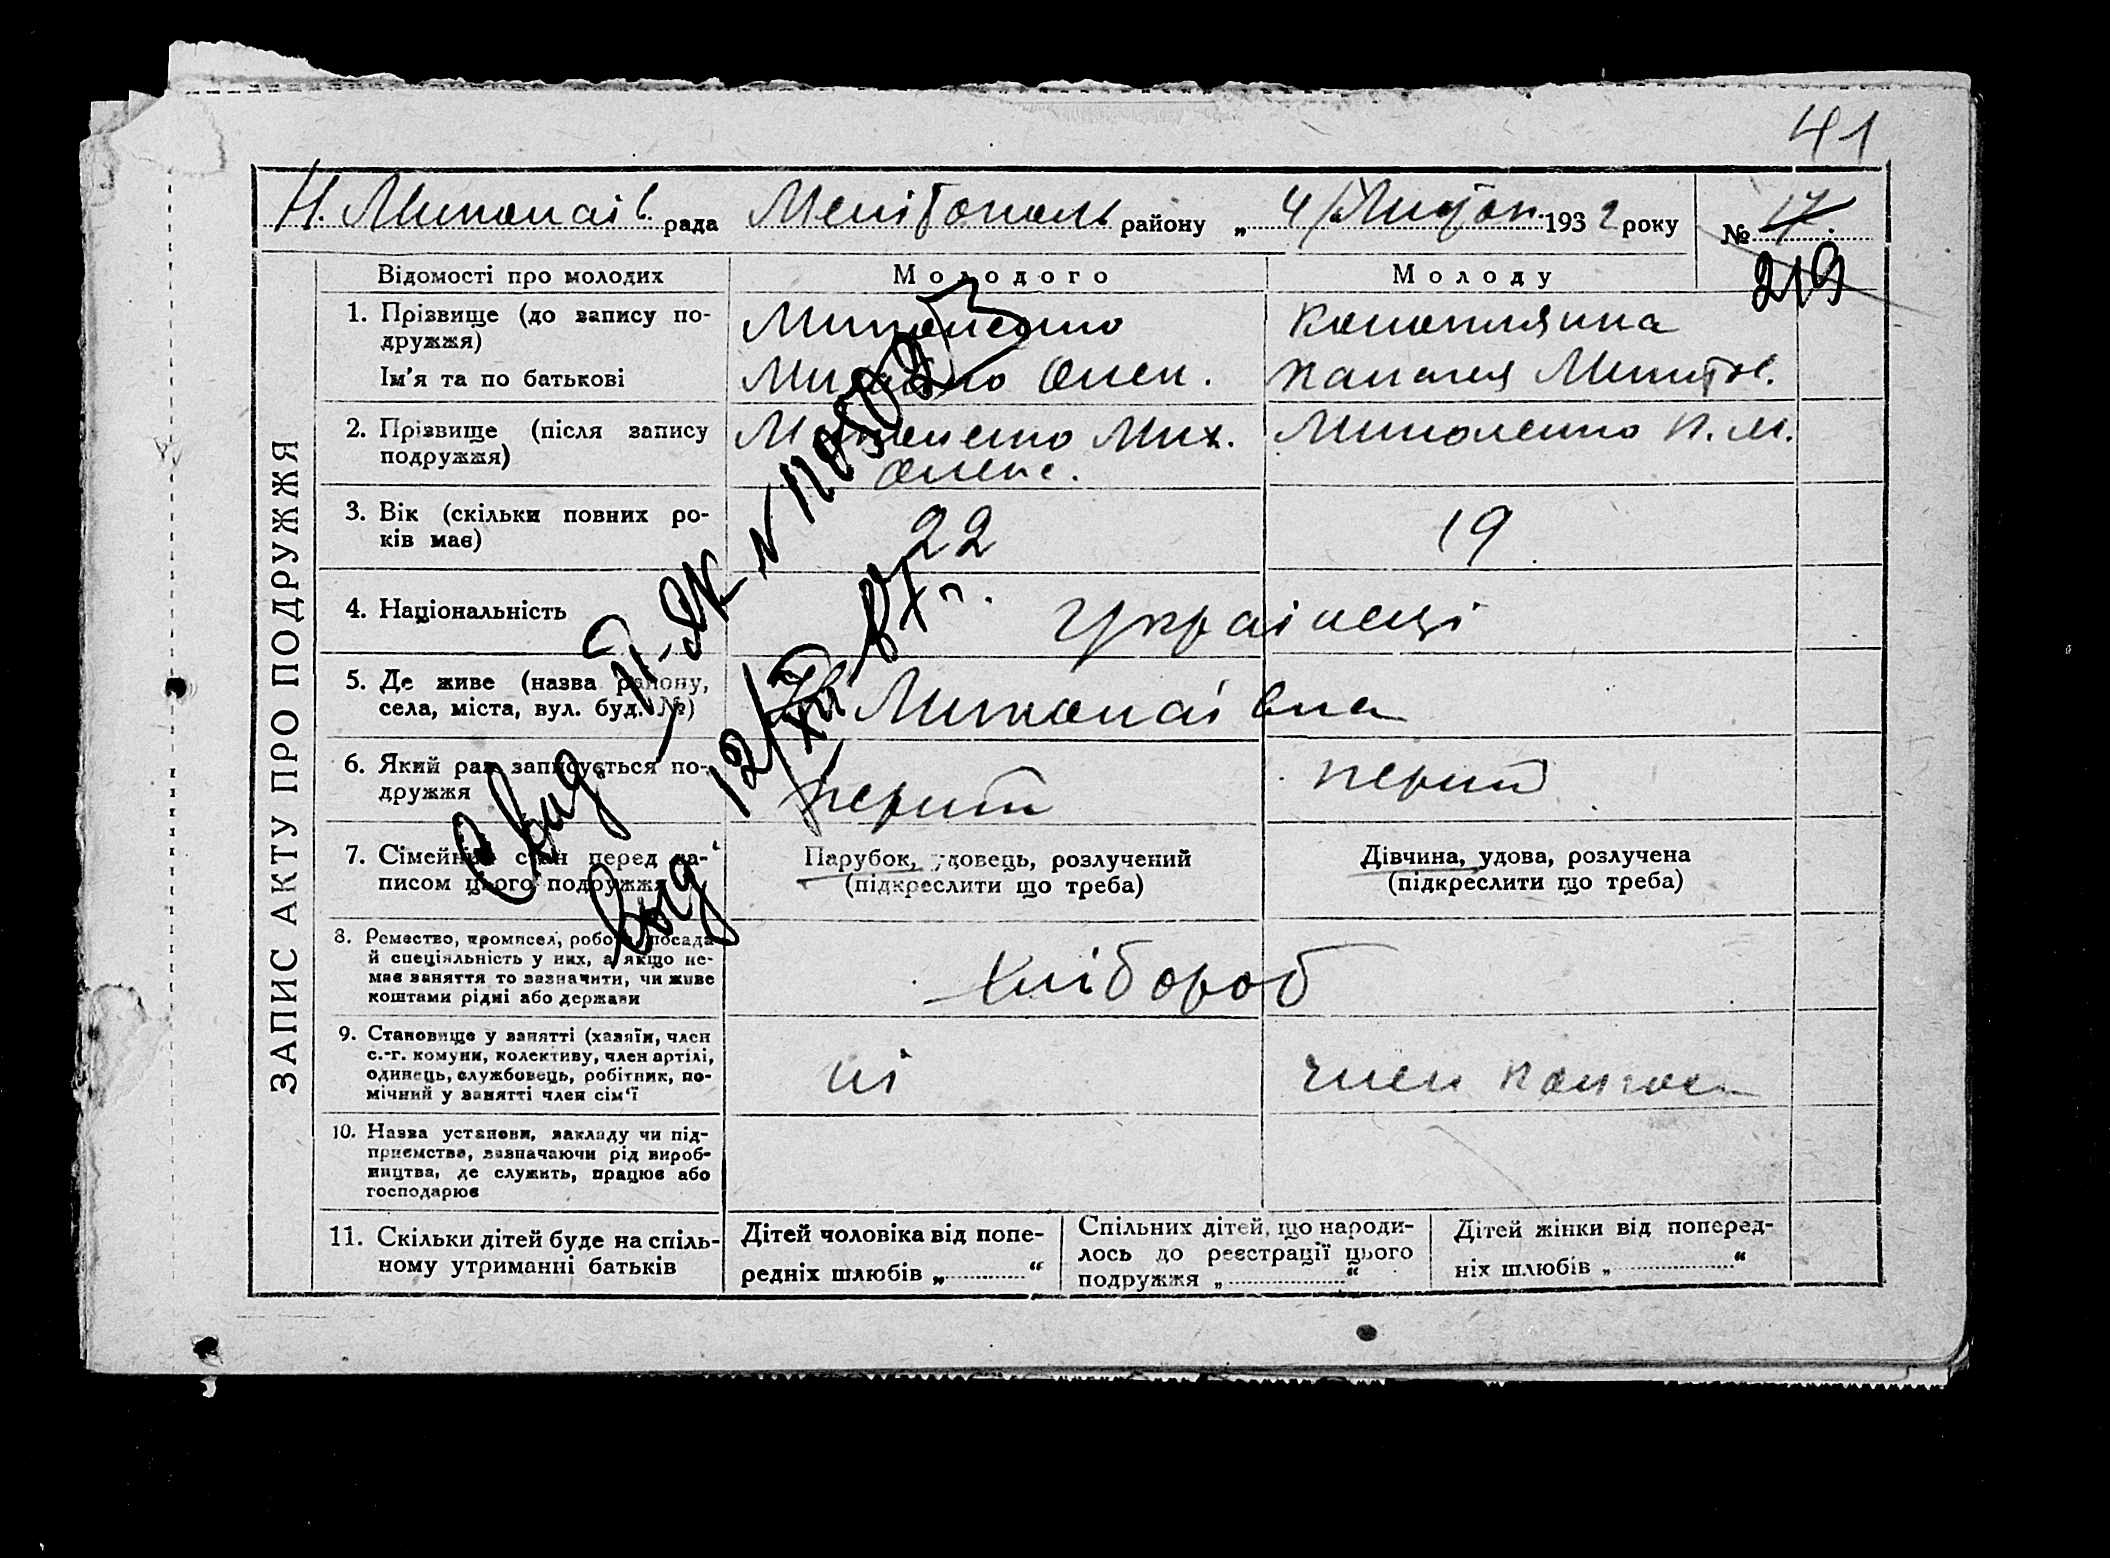 41
Н. Миколаїв. рада Мелітополь району „ 4/Лютон. 1932 року № 17.
219
ЗАПИС АКТУ ПРО ПОДРУЖЖЯ
Відомості про молодих Молодого Молоду
1. Прізвище (до запису по-
дружжя)
Миколенко Коноплянка
Ім'я та по батькові Михайло Олек. Палагея Микит.
2. Прізвище (після запису
подружжя)
Миколенко Мих. Миколенко П. М.
Олекс.
3. Вік (скільки повних ро-
ків має)
22 19
4. Національність Українці
5. Де живе (назва району,
села, міста, вул. буд. №)
Н Миколаівка
6. Який раз записується по-
дружжя
перший перший
7. Сімейний стан перед за-
писом цього подружжя
Парубок, удовець, розлучений
(підкреслити що треба)
Дівчина, удова, розлучена
(підкреслити що треба)
8. Ремество, промисел, робота, посада
й спеціяльність у них, а якщо не-
має заняття то зазначити, чи живе
коштами рідні або держави
Хлібороб
9. Становище у занятті (хазяїн, член
с.-г. комуни, колективу, член артілі,
одинець, службовець, робітник, по-
мічний у занятті член сім'ї
ні член колгосп
10. Назва установи, закладу чи під-
приємства, зазначаючи рід вироб-
ництва, де служить, працює або
господарює
11. Скільки дітей буде на спіль-
ному утриманні батьків
Дітей чоловіка від попе-
редніх шлюбів „ “
Спільних дітей, що народи-
лось до реєстрації цього
подружжя „ “
Дітей жінки від поперед-
ніх шлюбів „ “
Свид. II-ЯК N
Выд 12/XII